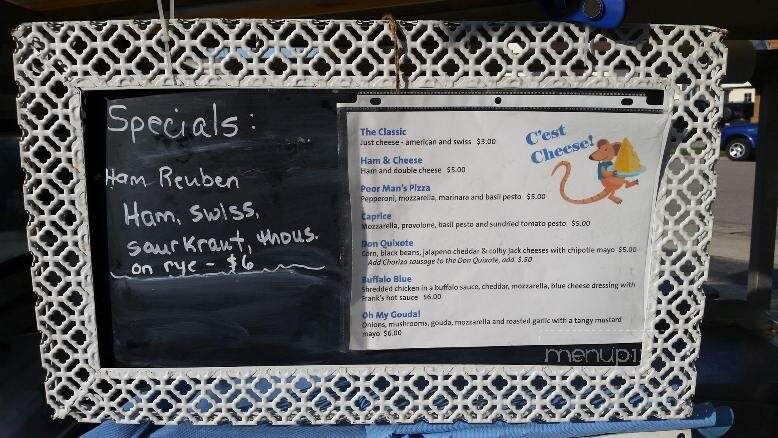 Specials:
Ham Reuben
Ham, swiss,
sourkraut, thous.
on rye - $6
C'est
Cheese!
The Classic
Just cheese - american and swiss $3.00
Ham & Cheese
Ham and double cheese $5.00
Poor Man's Pizza
Pepperoni, mozzarella, marinara and basil pesto $5.00
Caprice
Mozzarella, provolone, basil pesto and sundried tomato pesto $5.00
Don Quixote
Corn, black beans, jalapeno cheddar & colby jack cheeses with chipotle mayo $5.00
Add Chorizo sausage to the Don Quixote, add $.50
Buffalo Blue
Shredded chicken in a buffalo sauce, cheddar, mozzarella, blue cheese dressing with
Frank's hot sauce $6.00
Oh My Gouda!
Onions, mushrooms, gouda, mozzarella and roasted garlic with a tangy mustard
mayo $6.00
menupix